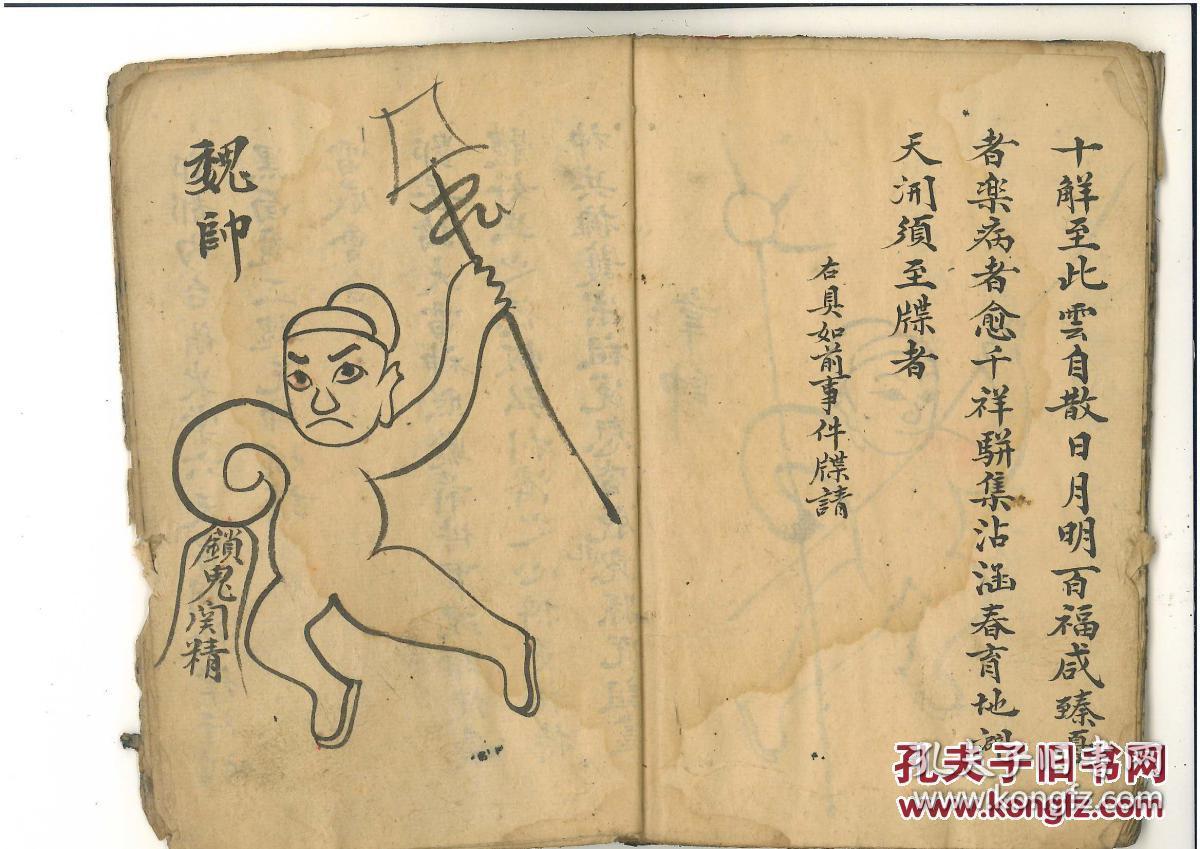 十解至此雲自散日月明百福咸臻
者楽病者愈千祥駢集沾涵春育地
天開須至牒者
右具如前事件牒請
魏帥
鎖鬼関精
孔夫子旧书网
www.kongfz.com